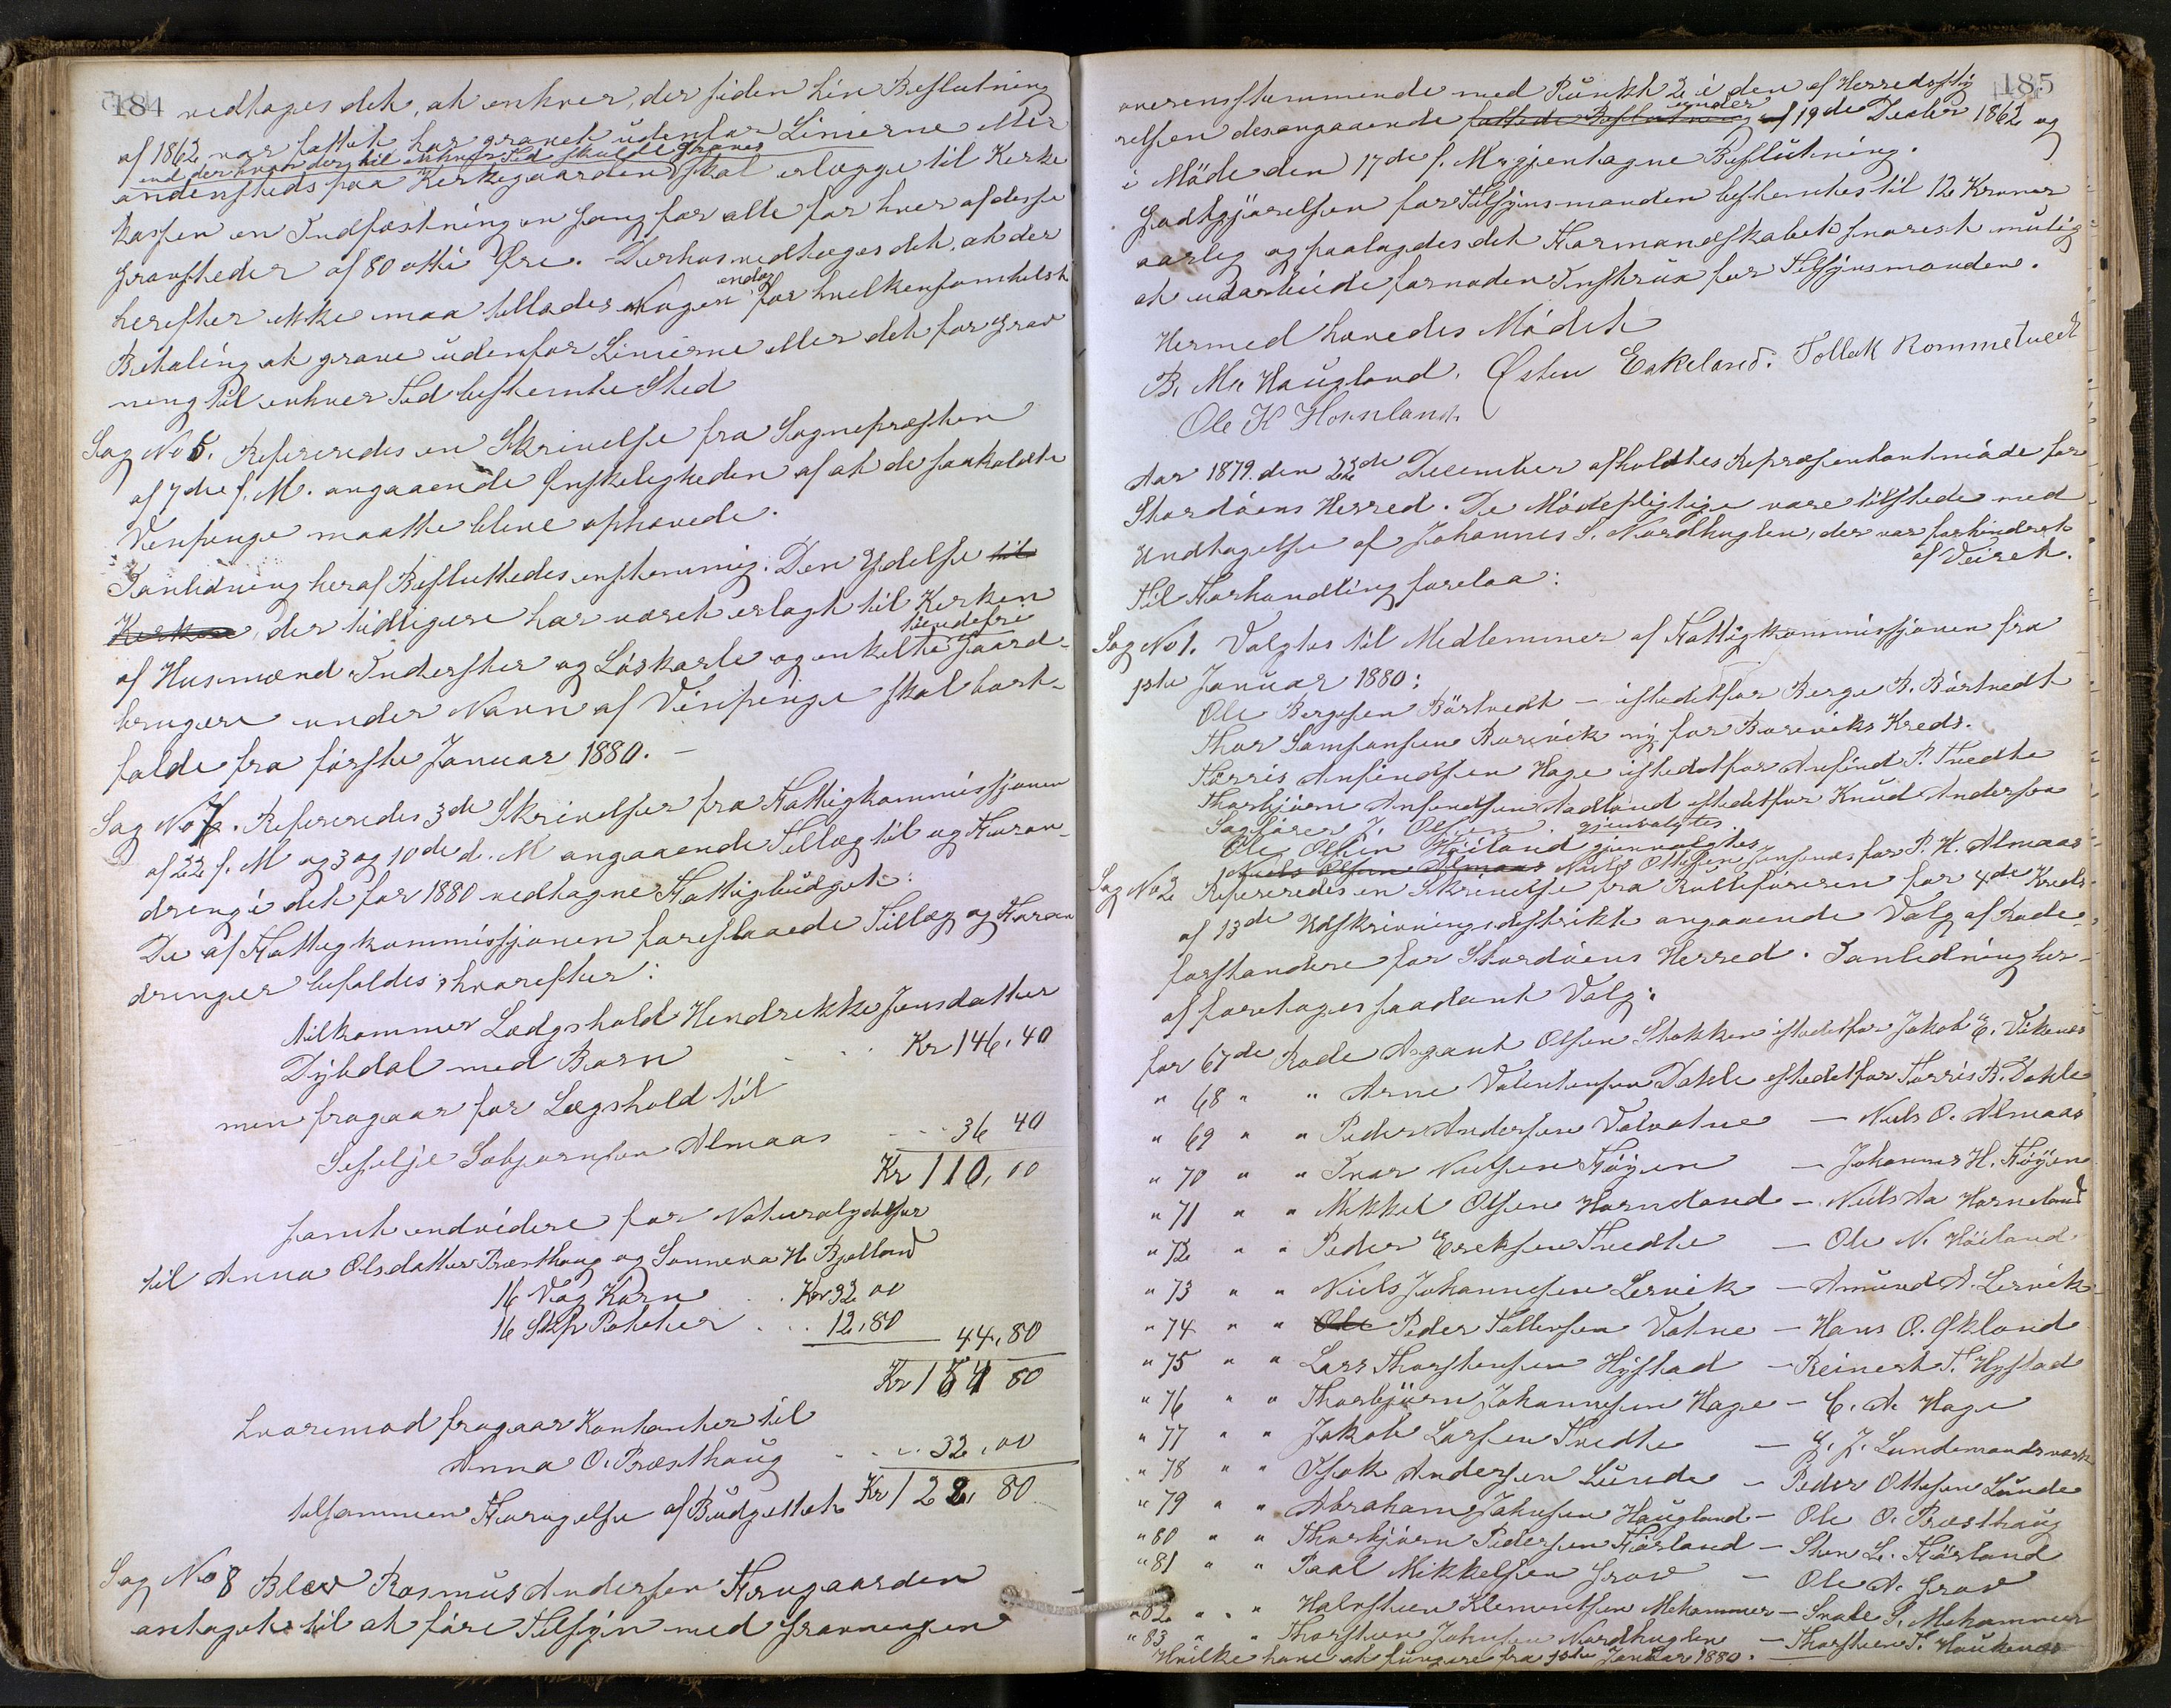 184
vedtoges det, at enhver, der siden hin Beslutning
af 1862 var fattet, har gravet udenfor Linierne eller
end der hvor der til enhver Tid skulde graves
andensteds paa Kirkegaarden skal erlægge til Kirke
kassen en Indfæstning en Gang for alle for hver af disse
Gravsteder af 80 otti Øre. Derhos vedtoges det, at der
herefter ikke maa tillades Nogen endog for hvilkensomhelst
Betaling at grave udenfor Linierne eller det for Grav
ning til enhver Tid bestemte Sted
Sag No 5. Refereredes en Skrivelse fra Sognepræsten
af 7de f. M. angaaende Ønskeligheden af at de saakaldte
Vinpenge maatte blive ophævede.
I anledning heraf Besluttedes enstemmig: Den Ydelse til
Kirken, der tidligere har været erlagt til Kirken
af Husmænd Inderster og Löskarle og enkelte tiendefri Gaard-
brugere under Navn af Vinpenge skal bort-
falde fra første Januar 1880. -
Sag No 7. Refereredes 3de Skrivelser fra Fattigkommissjonen
af 22 f. M og 3 og 10de d. M angaaende Tillæg til og Foran-
dring i det for 1880 vedtagne Fattigbudget:
De af Fattigkommissjonen foreslaaede Tillæg og Foran
dringer bifaldes, hvorefter:
tilkommer Lægdshold Hendrekke Jensdatter
Dybdal med Barn Kr 146,40
men fragaar for Lægshold til
Sesselje Sabjørnsen Almaas 36 40
Kr 110,00
samt endvidere for Naturalydelser
til Anna Olsdatter Præsthaug og Sunneva H. Bjelland
16 Vog Korn Kr 32 00
16 Skp Poteter 12,80
44,80
Kr 154 80
hvorimod fragaar Kontanter til
Anna O. Præsthaug 32,00
tilsammen Forøgelse af Budgettet Kr 122, 80
Sag No 8 Blev Rasmus Andersen Frugaarden
antaget til at føre Tilsyn med Gravningen
185
overensstemmende med Punkt 2 i den af Herredssty
relsen desangaaende fattede Beslutning af under 19de Decbr 1862 og
i Møde den 17de f. M. gjentagne Beslutning.
Godtgjørelsen for Tilsynsmanden bestemtes til 12 Kroner
aarlig og paalagdes det Formandskabet snarest mulig
at udarbeide fornøden Instrux for Tilsynsmanden.
Hermed hævedes Mødet
B. M. Haugland. Østen Eskeland. Tollak Rommetvedt
Ole H Hornland.
Aar 1879. den 22de December afholdtes Repræsentantmøde for
Stordøens Herred. De Mødepligtige vare tilstede med
Undtagelse af Johannes S. Nordhuglen, der var forhindret
af Veiret.
Til Forhandling forelaa:
Sag No 1. Valgtes til Medlemmer af Fattigkommissjonen fra
1ste Januar 1880:
Ole Bergesen Börtvedt - istedetfor Berge B. Börtvedt
Thor Samsonsen Börevik ny for Böreviks Kreds.
Torris Anfindsen Hage istedetfor Anfind P. Tvedte
Thorbjørn Anfindsen Aadland istedetfor Knud Anderssen
Sagfører J. Olsen gjenvalgtes
Ole Olsen Høiland gjenvalgtes
Niels Olsen Almaas Niels Ottesen for P. H. Almaas
Sag No 2 Refereredes en Skrivelse fra Rulleføreren for 4de Kreds
af 13de Udskrivningsdistrikt angaaende Valg af Rode-
forstandere for Stordøens Herred. I anledning her-
af foretoges saadant Valg:
for 67de Rode Asgaut Olsen Stokken istedetfor Jakob E. Vikenes
" 68 " " Arne Valentinsen Dahle istedetfor Torris B. Dahle
" 69 " " Peder Andersen Valvatne - Niels O. Almaas
" 70 " " Ivar Nielsen Føyen - Johannes H. Føyen
" 71 " " Mikkel Olsen Horneland - Niels Aa Horneland
" 72 " " Peder Ereksen Tvedte - Ole N. Höiland
" 73 " " Niels Johannessen Lervik - Amund A. Lervik
" 74 " " Ole Peder Tollevsen Vatne - Hans O. Økland
" 75 " " Lars Thorstensen Hystad - Reinert T. Hystad
" 76 " " Thorbjørn Johannesen Hage - E. A. Hage
" 77 " " Jakob Larsen Tvedte - E. J. Lundemandsværk
" 78 " " Isak Andersen Lunde - Peder Ottesen Lunde
" 79 " " Abraham Johnsen Haugland - Ole O. Præsthaug
" 80 " " Thorbjørn Pedersen Førland - Sten L. Førland
" 81 " " Paal Mikkelsen Grov - Ole A. Grov
" 82 " " Halvsteen Klementsen Mehammer - P. Mehammer
" 83 " " Thorsten Johnsen Nordhuglen - Thorsten T. Haukenæs
Hvilke have at fungere fra 1ste Januar 1880.